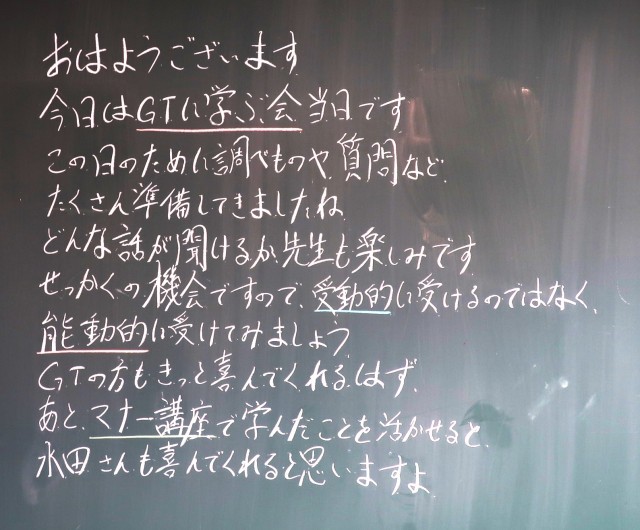 おはようございます
今日はGTに学ぶ会当日です
この日のために調べものや、質問など、
たくさん準備してきましたね
どんな話が聞けるか先生も楽しみです
せっかくの機会ですので、受動的に受けるのではなく、
能動的に受けてみましょう
GTの方もきっと喜んでくれるはず。
あと、マナー講座で学んだことを活かせると、
水田さんも喜んでくれると思いますよ